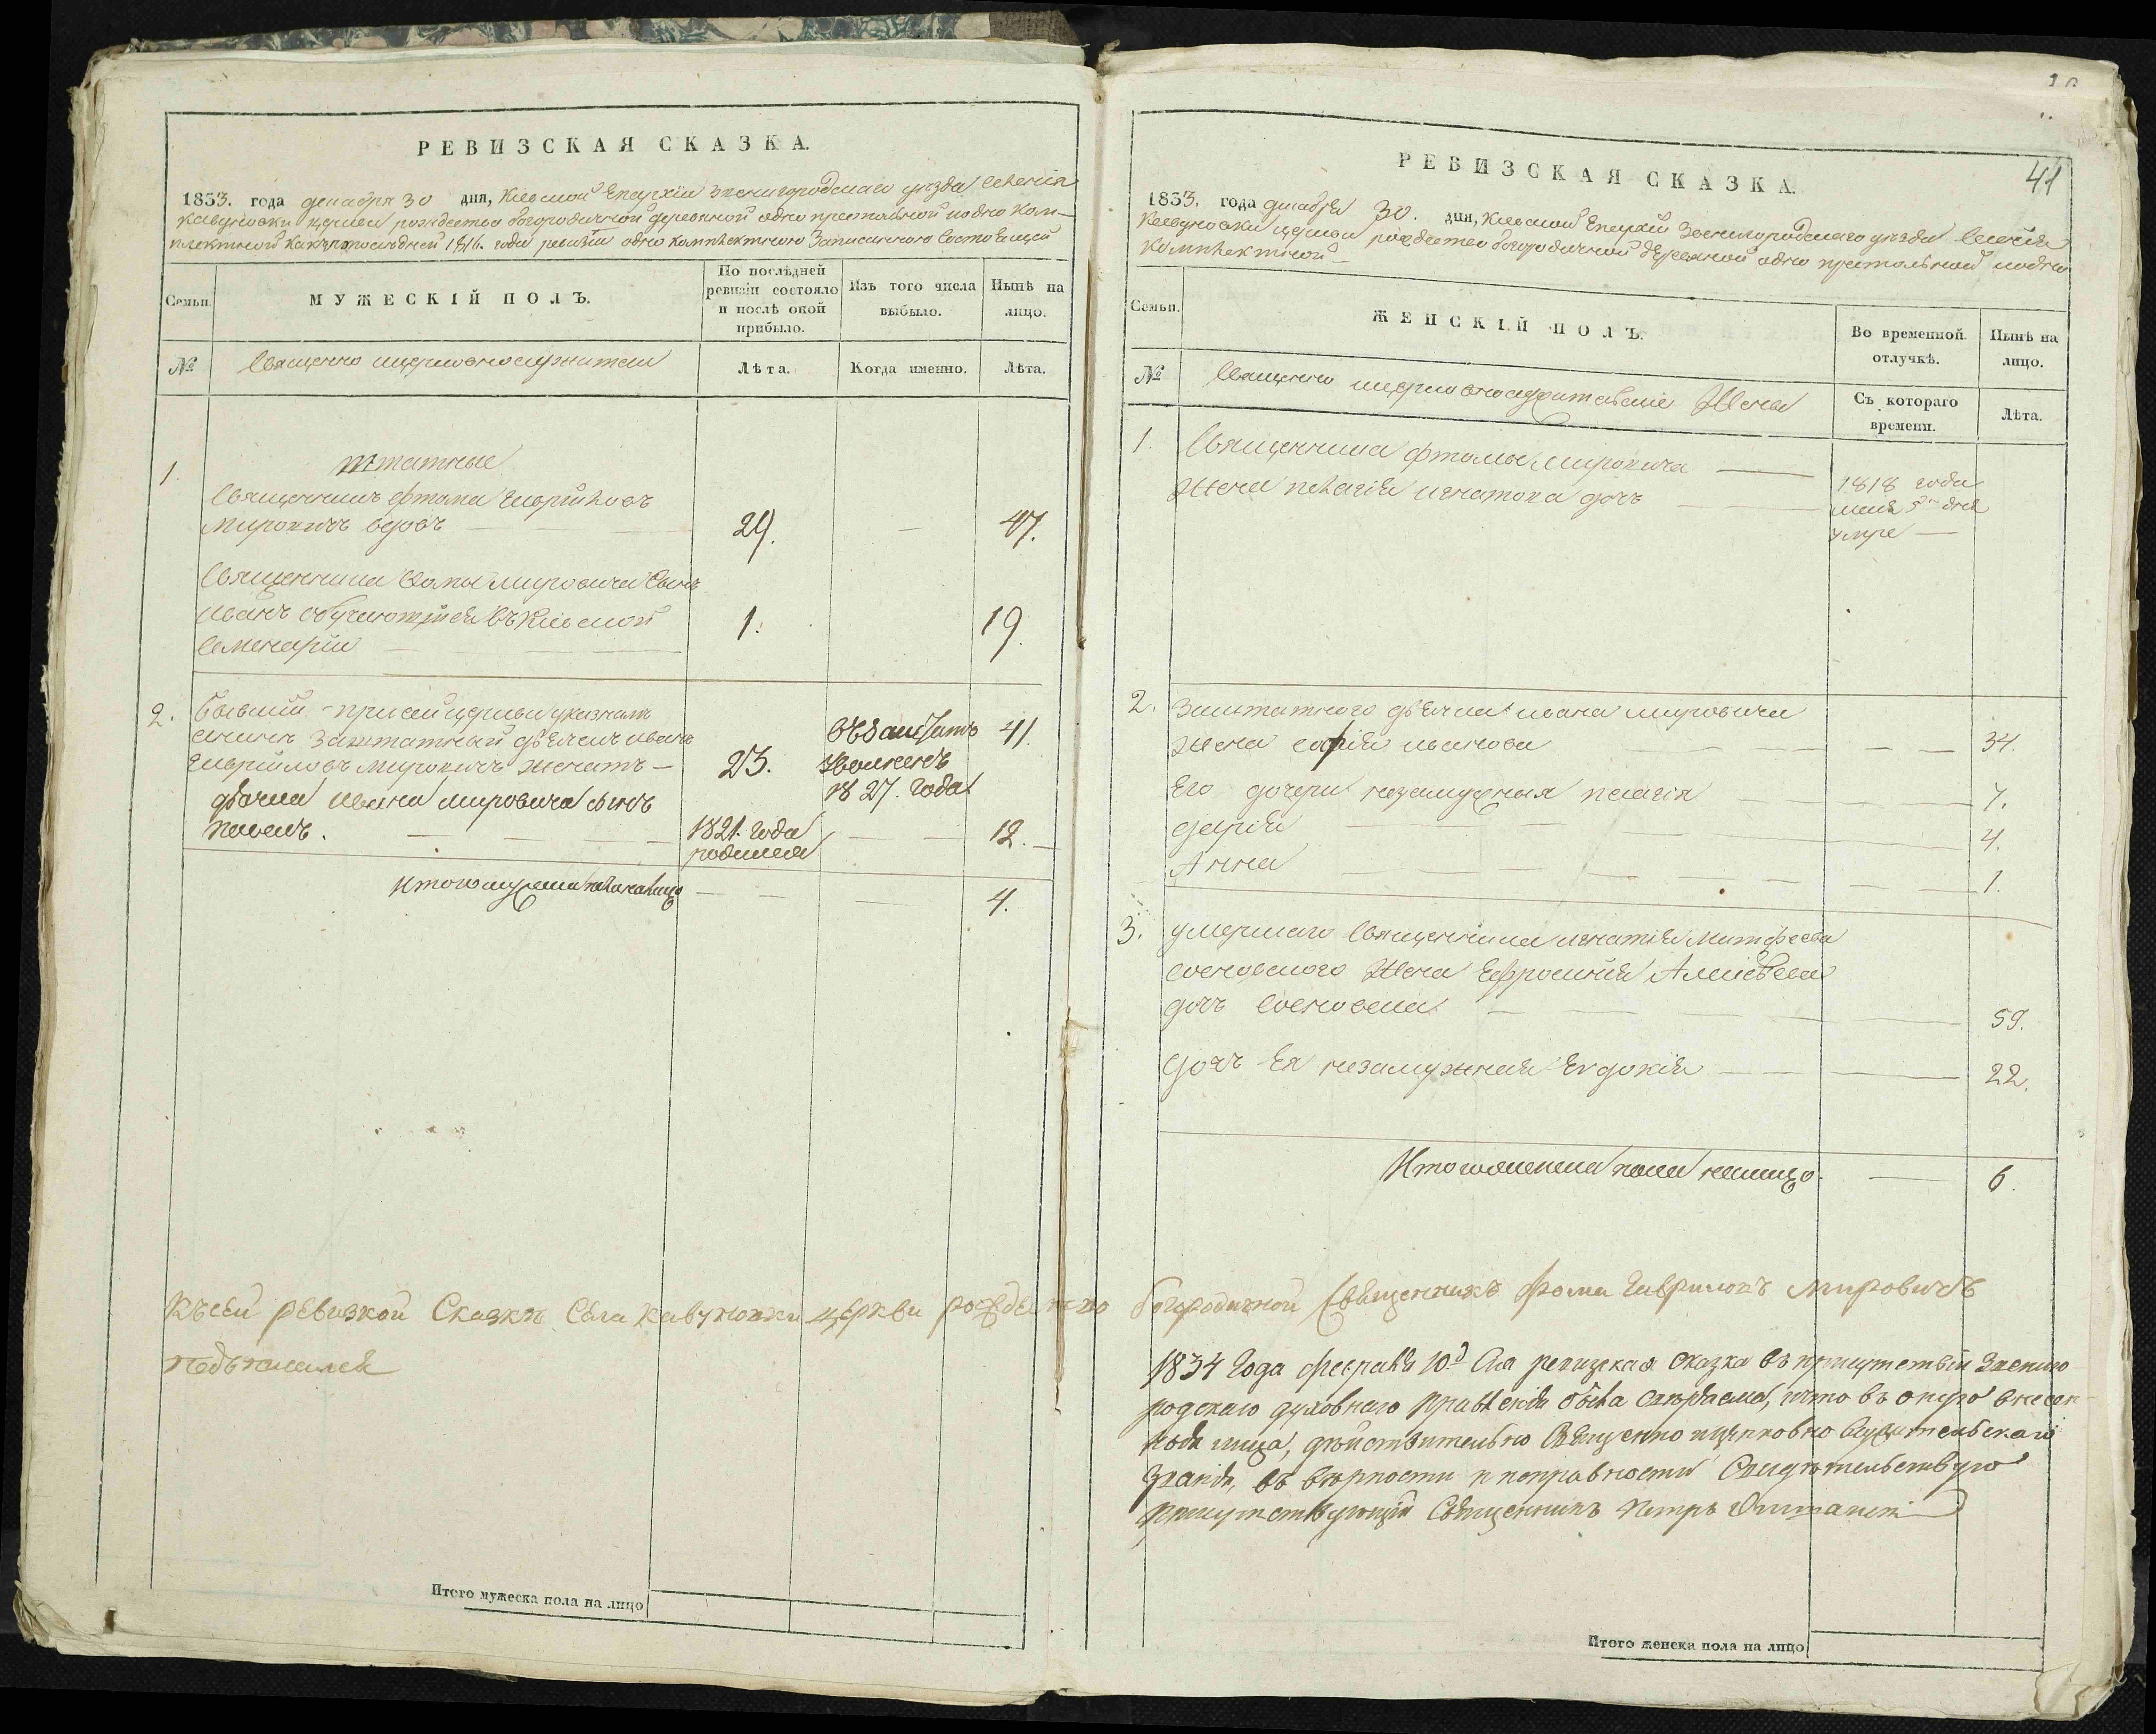 РЕВИЗСКАЯ СКАЗКА.
1833. года декабря 30 дня, Киевской Епархіи Звенигородскаго уезда Селенія
Кавуновки церкви рождество богородичной деревяной одно престольной и одно ком-
плектной какъ по последней 1816. года ревизіи одно комплектного записанного Состоящей
Семьи.
МУЖЕСКІЙ ПОЛЪ.
По послѣдней ревизіи состояло и послѣ оной прибыло.
Изъ того числа выбыло.
Нынѣ на лицо.
№
Священно и церковно служители
Лѣта.
Когда именно.
Лѣта.
штатные
1. Священникъ Фтома Гавриловъ
Мировичъ вдовъ — 29. — 47.
Священника Фомы Мировича Сынъ
Иванъ обучающійся въ Киевской
Семенаріи — 1. 19.
2. бывшій при сей церкви указнымъ
заштатный дьячекъ Иванъ
Гавриловъ Мировичъ женатъ — 23. 41.
1827. года
дьячка Ивана Мировича сынъ
Павелъ. — 1821. года родился — 12.
Итого мужеска пола на лицо — 4.
Къ сей ревизкой Сказкъ Села Кавуновки церкви рождество
подписался
Итого мужеска пола на лицо
10
41
РЕВИЗСКАЯ СКАЗКА.
1833. года декабря 30. дня, Киевской Епархіи Звенигородскаго уезда Селенія
Кавуновки церкви рождество богородичной деревяной одно престольной и одно
комплектной —
Семьи.
ЖЕНСКІЙ ПОЛЪ.
Во временной отлучкѣ.
Нынѣ на лицо.
№
Священно и церковно служительскіе Жены
Съ котораго времени.
Лѣта.
1. Священника Фтомы Мировича —
Жена Пелагія Игнатова дочъ — 1818 года
маія 5 дня
умре —
2. Заштатного дьячка Ивана Мировича
Жена Софія Иванова — 34.
Его дочери незамужныя Пелагія — 7.
Дарія — 4.
Анна — 1.
3. умершаго Священника Игнатія Матфеева
Сосновского Жена Ефросинія Алексѣева
дочъ Сосновска — 59.
Дочъ Ея незамужная Евдокія — 22.
Итого женска пола на лицо — 6.
богородичной Священникъ Фома Гавриловъ Мировичъ
1834 Года февраля 10.д Сія ревизская сказка въ присутствіи Звениго
родскаго духовнаго Правленія была свѣряема, и что въ оную внесен-
ныя лица, дѣйствительно Священно и церковно служительскаго
званія, въ вѣрности и исправности Свидѣтельствую
Присутствующій Священникъ Петръ
Итого женска пола на лицо